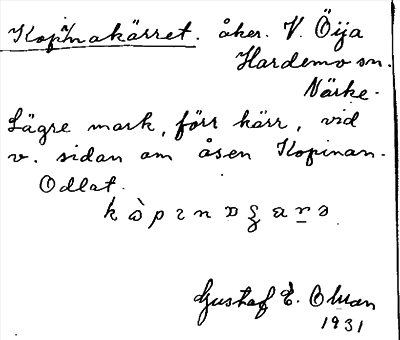 Kopinnakärret. åker. V. Öija
Hardemo sn.
Närke.
Lägre mark, förr kärr, vid
v. sidan om åsen Kopinan.
Odlat.
Gustaf E. Olsson
1931